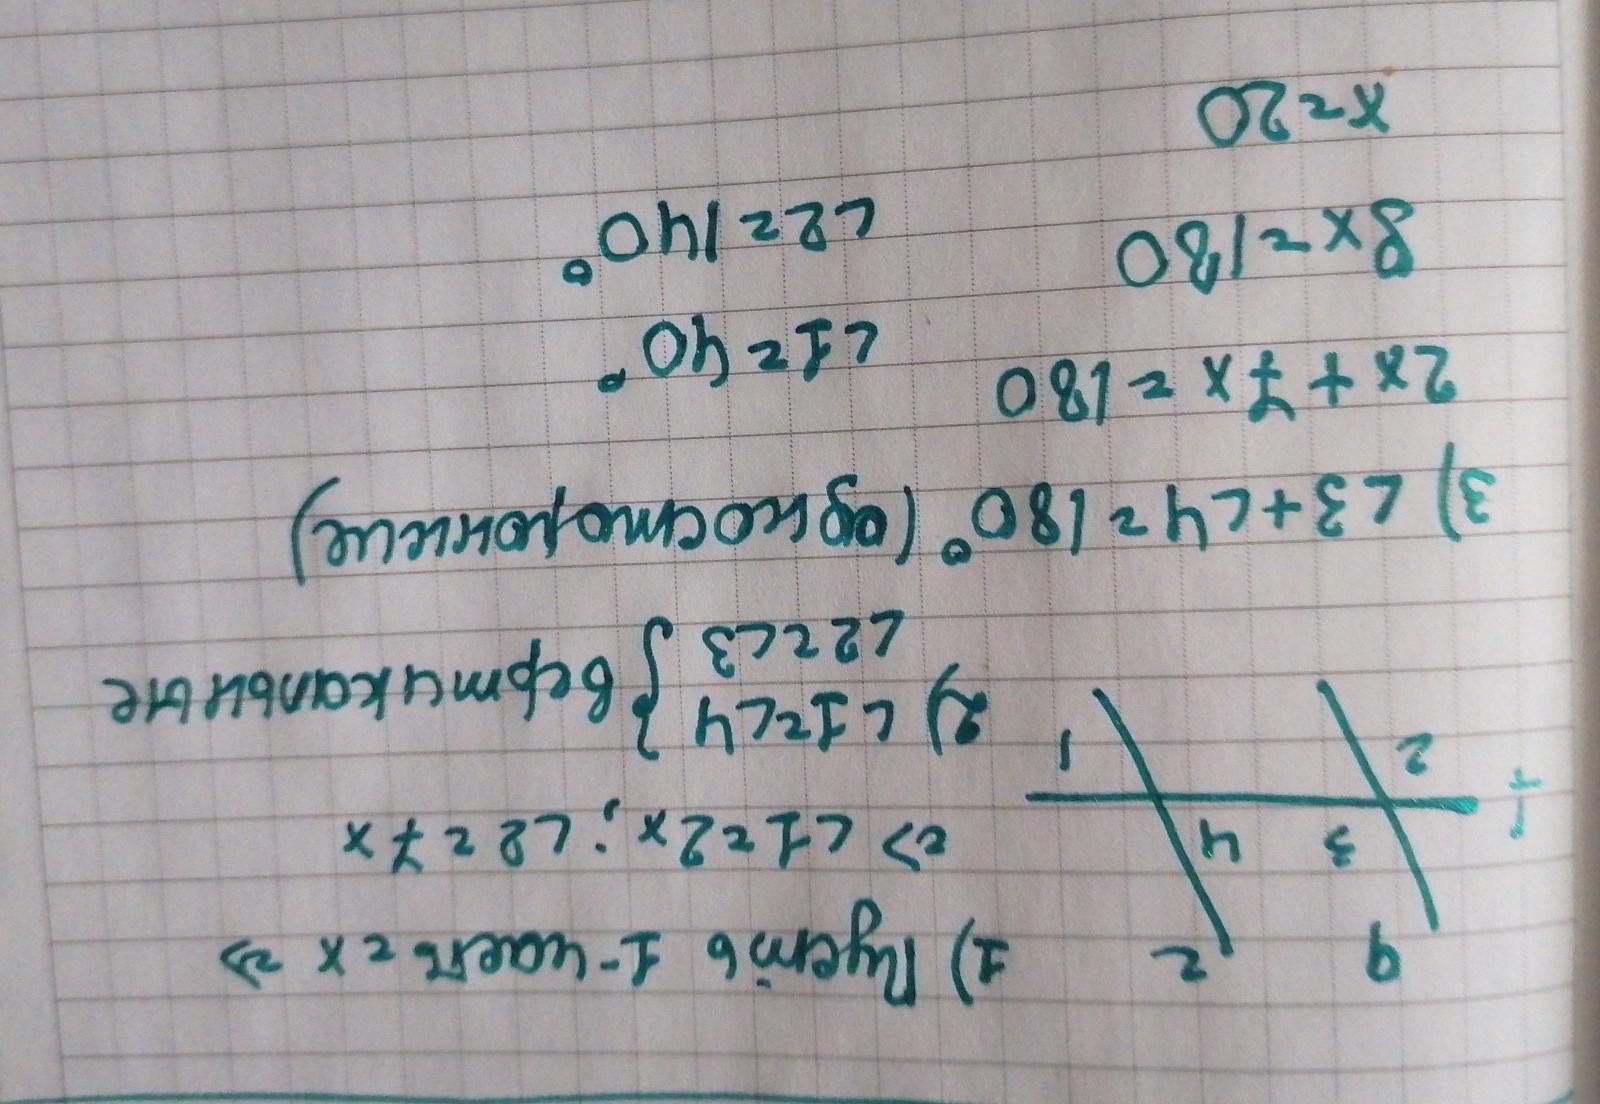 b
1) Пусть 1-часть = x =>
=> ∠1=2x; ∠2=7x
3 4
2 1
2) ∠1=∠4 } вертикальные
∠2=∠3
3) ∠3+∠4=180° (односторонние)
2x+7x=180 ∠1=40°
9x=180 ∠2=140°
x=20